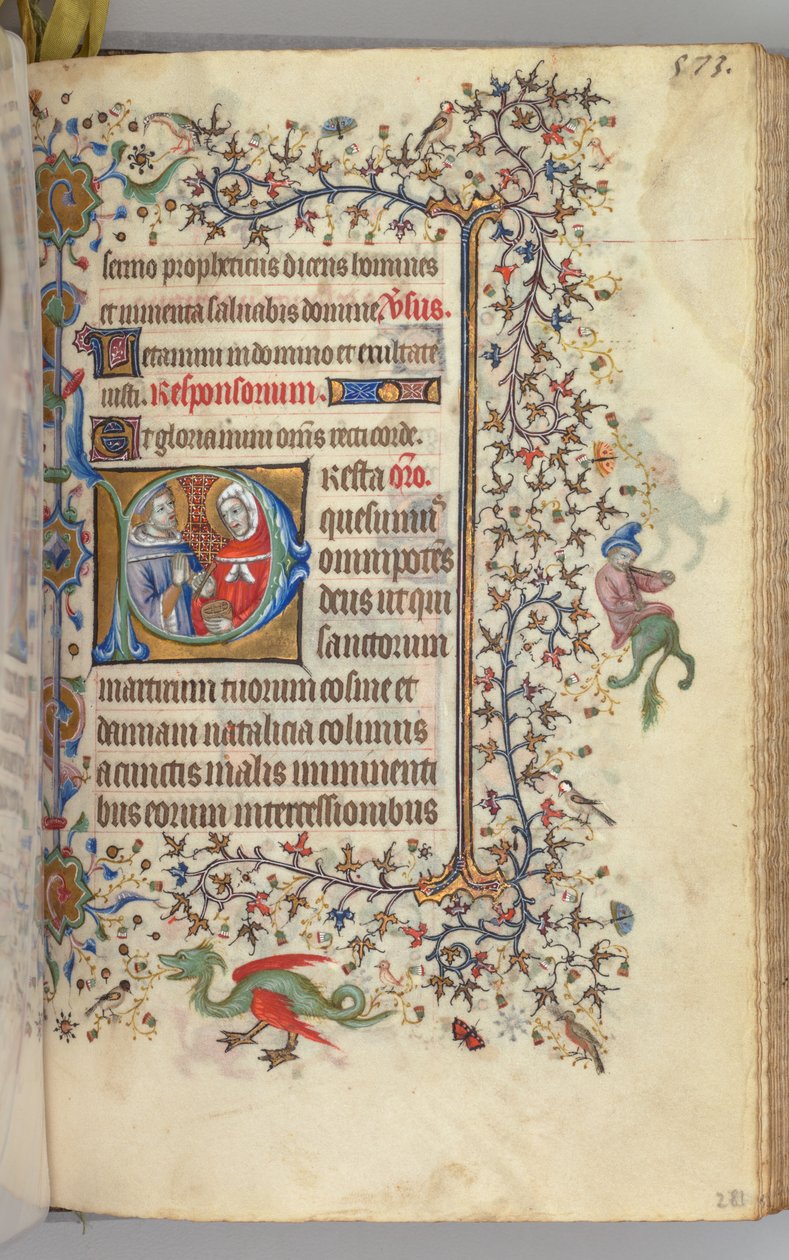 573.
sermo propheticus dicens homines
et iumenta saluabis domine V̄sus.
Letamini in domino et exultate
iusti. Responsorium.
Et gloriamini om̄s recti corde.
PResta or̄o.
quesumus
omnipotēs
deus ut qui
sanctorum
martirum tuorum cosme et
damiani natalicia colimus
a cunctis malis imminenti
bus eorum intercessionibus
281